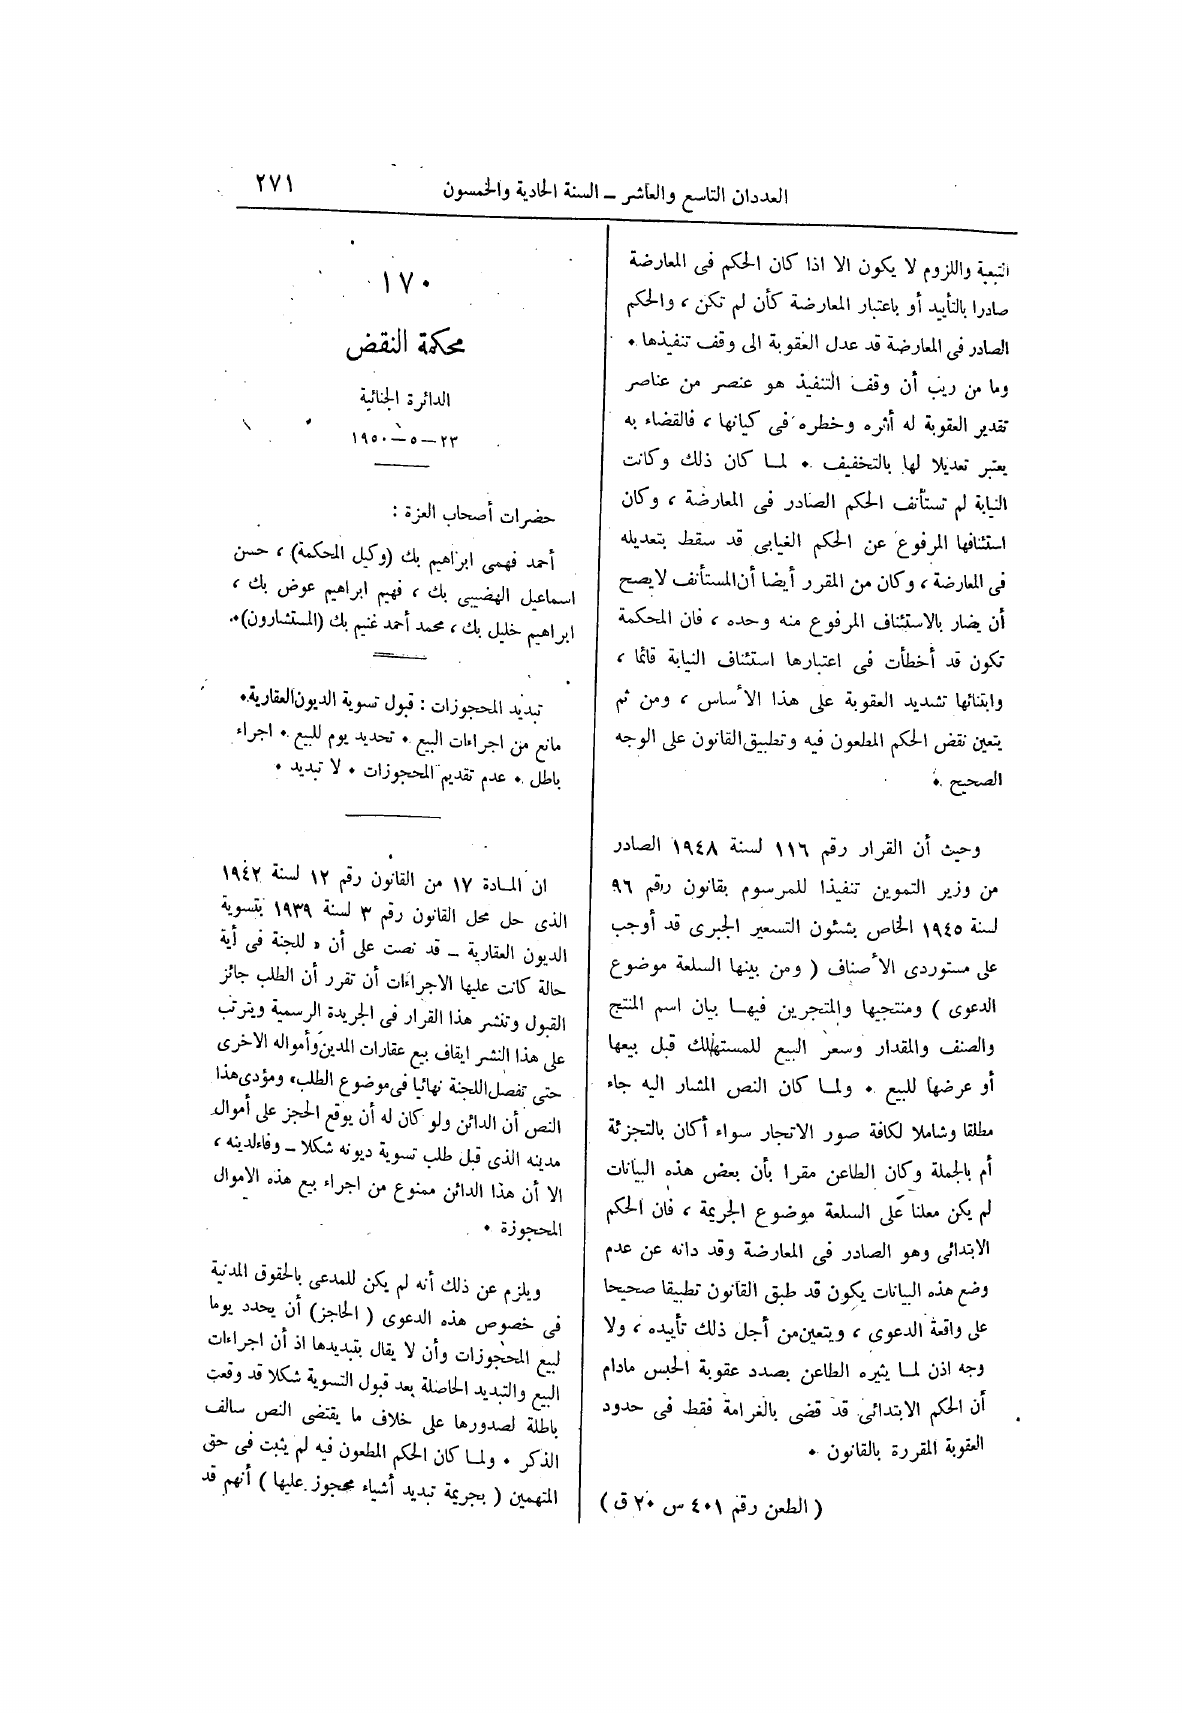 العددان التاسع والعاشر – السنة الحادية والخمسون
٢٧١
التبعية واللزوم لا يكون الا اذا كان الحكم فى المعارضة
صادرا بالتأييد أو باعتبار المعارضة كأن لم تكن ، والحكم
الصادر فى المعارضة قد عدل العقوبة الى وقف تنفيذها .
وما من ريب أن وقف التنفيذ هو عنصر من عناصر
تقدير العقوبة له أثره وخطره فى كيانها ، فالقضاء به
يعتبر تعديلا لها بالتخفيف . لمـا كان ذلك وكانت
النيابة لم تستأنف الحكم الصادر فى المعارضة ، وكان
استئنافها المرفوع عن الحكم الغيابى قد سقط بتعديله
فى المعارضة ، وكان من المقرر أيضا أن المستأنف لا يصح
أن يضار بالاستئناف المرفوع منه وحده ، فان المحكمة
تكون قد أخطأت فى اعتبارها استئناف النيابة قائما ،
وابتنائها تشديد العقوبة على هذا الأساس ، ومن ثم
يتعين نقض الحكم المطعون فيه وتطبيق القانون على الوجه
الصحيح .
وحيث أن القرار رقم ١١٦ لسنة ١٩٤٨ الصادر
من وزير التموين تنفيذا للمرسوم بقانون رقم ٩٦
لسنة ١٩٤٥ الخاص بشئون التسعير الجبرى قد أوجب
على مستوردى الأصناف ( ومن بينها السلعة موضوع
الدعوى ) ومنتجيها والمتجرين فيهـا بيان اسم المنتج
والصنف والمقدار وسعر البيع للمستهلك قبل بيعها
أو عرضها للبيع . ولمـا كان النص المشار اليه جاء
مطلقا وشاملا لكافة صور الاتجار سواء أكان بالتجزئة
أم بالجملة وكان الطاعن مقرا بأن بعض هذه البيانات
لم يكن معلنا على السلعة موضوع الجريمة ، فان الحكم
الابتدائى وهو الصادر فى المعارضة وقد دانه عن عدم
وضع هذه البيانات يكون قد طبق القانون تطبيقا صحيحا
على واقعة الدعوى ، ويتعين من أجل ذلك تأييده ، ولا
وجه اذن لمـا يثيره الطاعن بصدد عقوبة الحبس مادام
أن الحكم الابتدائى قد قضى بالغرامة فقط فى حدود
العقوبة المقررة بالقانون .
( الطعن رقم ٤٠١ س ٢٠ ق )
١٧٠
محكمة النقض
الدائرة الجنائية
٢٣–٥–١٩٥٠
حضرات أصحاب العزة :
أحمد فهمى ابراهيم بك (وكيل المحكمة) ، حسن
اسماعيل الهضيبى بك ، فهيم ابراهيم عوض بك ،
ابراهيم خليل بك ، محمد أحمد غنيم بك (المستشارون).
تبديد المحجوزات : قبول تسوية الديون العقارية .
مانع من اجراءات البيع . تحديد يوم للبيع . اجراء
باطل . عدم تقديم المحجوزات . لا تبديد .
ان المـادة ١٧ من القانون رقم ١٢ لسنة ١٩٤٢
الذى حل محل القانون رقم ٣ لسنة ١٩٣٩ بتسوية
الديون العقارية – قد نصت على أن « للجنة فى أية
حالة كانت عليها الاجراءات أن تقرر أن الطلب جائز
القبول وتنشر هذا القرار فى الجريدة الرسمية ويترتب
على هذا النشر ايقاف بيع عقارات المدين وأمواله الاخرى
حتى تفصل اللجنة نهائيا فى موضوع الطلب» ومؤدى هذا
النص أن الدائن ولو كان له أن يوقع الحجز على أموال
مدينه الذى قبل طلب تسوية ديونه شكلا – وفاء لدينه ،
الا أن هذا الدائن ممنوع من اجراء بيع هذه الاموال
المحجوزة .
ويلزم عن ذلك أنه لم يكن للمدعى بالحقوق المدنية
فى خصوص هذه الدعوى ( الحاجز) أن يحدد يوما
لبيع المحجوزات وأن لا يقال بتبديدها اذ أن اجراءات
البيع والتبديد الحاصلة بعد قبول التسوية شكلا قد وقعت
باطلة لصدورها على خلاف ما يقتضى النص سالف
الذكر . ولمـا كان الحكم المطعون فيه لم يثبت فى حق
المتهمين ( بجريمة تبديد أشياء محجوز عليها ) أنهم قد